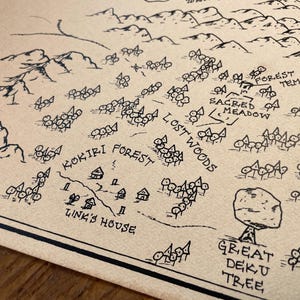 FOREST
TEM
SACRED
MEADOW
LOST WOODS
KOKIRI FOREST
LINK'S HOUSE
GREAT
DEKU
TREE